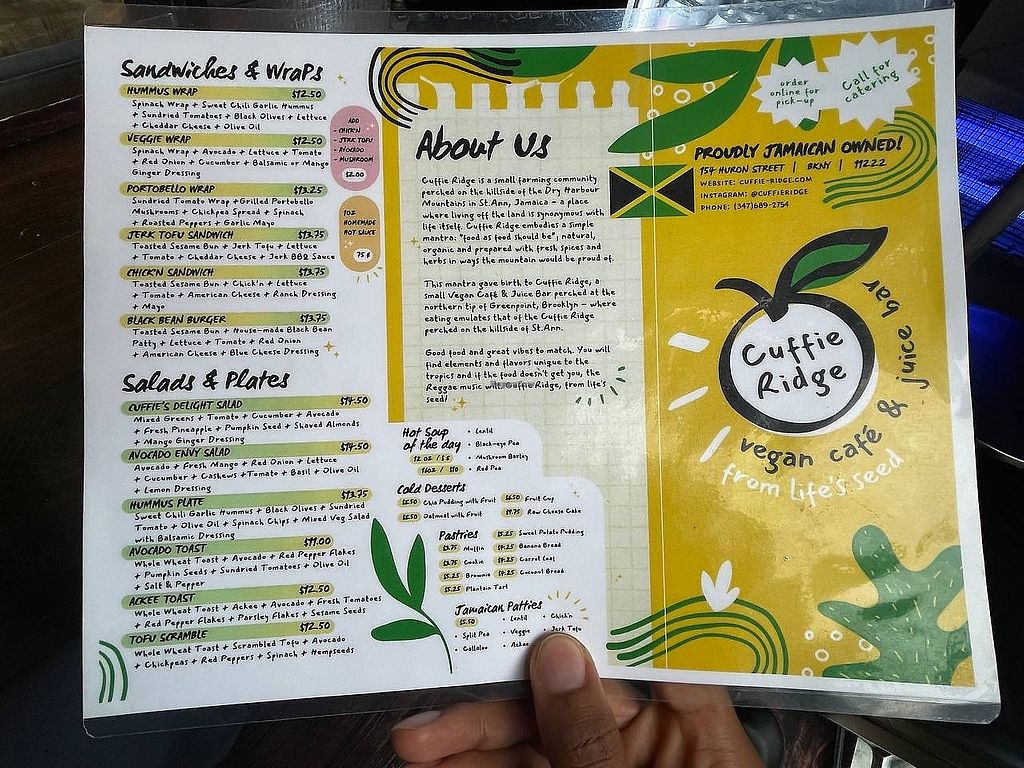 Sandwiches & Wraps
HUMMUS WRAP $12.50
Spinach Wrap + Sweet Chili Garlic Hummus
+ Sundried Tomatoes + Black Olives + Lettuce
+ Cheddar Cheese + Olive Oil
VEGGIE WRAP $12.50
Spinach Wrap + Avocado + Lettuce + Tomato
+ Red Onion + Cucumber + Balsamic or Mango
Ginger Dressing
PORTOBELLO WRAP $13.25
Sundried Tomato Wrap + Grilled Portobello
Mushrooms + Chickpea Spread + Spinach
+ Roasted Peppers + Garlic Mayo
JERK TOFU SANDWICH $13.75
Toasted Sesame Bun + Jerk Tofu + Lettuce
+ Tomato + Cheddar Cheese + Jerk BBQ Sauce
CHICK'N SANDWICH $13.75
Toasted Sesame Bun + Chick'n + Lettuce
+ Tomato + American Cheese + Ranch Dressing
+ Mayo
BLACK BEAN BURGER $13.75
Toasted Sesame Bun + House-made Black Bean
Patty + Lettuce + Tomato + Red Onion
+ American Cheese + Blue Cheese Dressing
ADD
- CHICK'N
- JERK TOFU
- AVOCADO
- MUSHROOM
$2.00
1OZ
HOMEMADE
HOT SAUCE
75¢
Salads & Plates
CUFFIE'S DELIGHT SALAD $14.50
Mixed Greens + Tomato + Cucumber + Avocado
+ Fresh Pineapple + Pumpkin Seed + Shaved Almonds
+ Mango Ginger Dressing
AVOCADO ENVY SALAD $14.50
Avocado + Fresh Mango + Red Onion + Lettuce
+ Cucumber + Cashews + Tomato + Basil + Olive Oil
+ Lemon Dressing
HUMMUS PLATE $13.75
Sweet Chili Garlic Hummus + Black Olives + Sundried
Tomato + Olive Oil + Spinach Chips + Mixed Veg Salad
with Balsamic Dressing
AVOCADO TOAST $11.00
Whole Wheat Toast + Avocado + Red Pepper Flakes
+ Pumpkin Seeds + Sundried Tomatoes + Olive Oil
+ Salt & Pepper
ACKEE TOAST $12.50
Whole Wheat Toast + Ackee + Avocado + Fresh Tomatoes
+ Red Pepper Flakes + Parsley Flakes + Sesame Seeds
TOFU SCRAMBLE $12.50
Whole Wheat Toast + Scrambled Tofu + Avocado
+ Chickpeas + Red Peppers + Spinach + Hempseeds
About Us
Cuffie Ridge is a small farming community
perched on the hillside of the Dry Harbour
Mountains in St.Ann, Jamaica – a place
where living off the land is synonymous with
life itself. Cuffie Ridge embodies a simple
mantra: "food as food should be"; natural,
organic and prepared with fresh spices and
herbs in ways the mountain would be proud of.
This mantra gave birth to Cuffie Ridge, a
small Vegan Café & Juice Bar perched at the
northern tip of Greenpoint, Brooklyn – where
eating emulates that of the Cuffie Ridge
perched on the hillside of St.Ann.
Good food and great vibes to match. You will
find elements and flavors unique to the
tropics and if the food doesn't get you, the
Reggae music will. Cuffie Ridge, from life's
seed!
Hot Soup
of the day
12 OZ /
16OZ / $10
• Lentil
• Black-eye Pea
• Mushroom Barley
• Red Pea
Cold Desserts
$6.50 Chia Pudding with Fruit $6.50 Fruit Cup
$6.50 Oatmeal with Fruit $9.75 Raw Cheese Cake
Pastries $5.25 Sweet Potato Pudding
$3.75 Muffin $4.25 Banana Bread
$3.75 Cookie $4.25 Carrot Loaf
$5.25 Brownie $4.25 Coconut Bread
$5.25 Plantain Tart
Jamaican Patties
$5.50 • Lentil • Chick'n
• Split Pea • Veggie • Jerk Tofu
• Callaloo • Ackee
order
online for
pick-up
Call for
catering
PROUDLY JAMAICAN OWNED!
154 HURON STREET | BKNY | 11222
WEBSITE: CUFFIE-RIDGE.COM
INSTAGRAM: @CUFFIERIDGE
PHONE: (347)689-2754
Cuffie
Ridge
vegan café & juice bar
from life's seed